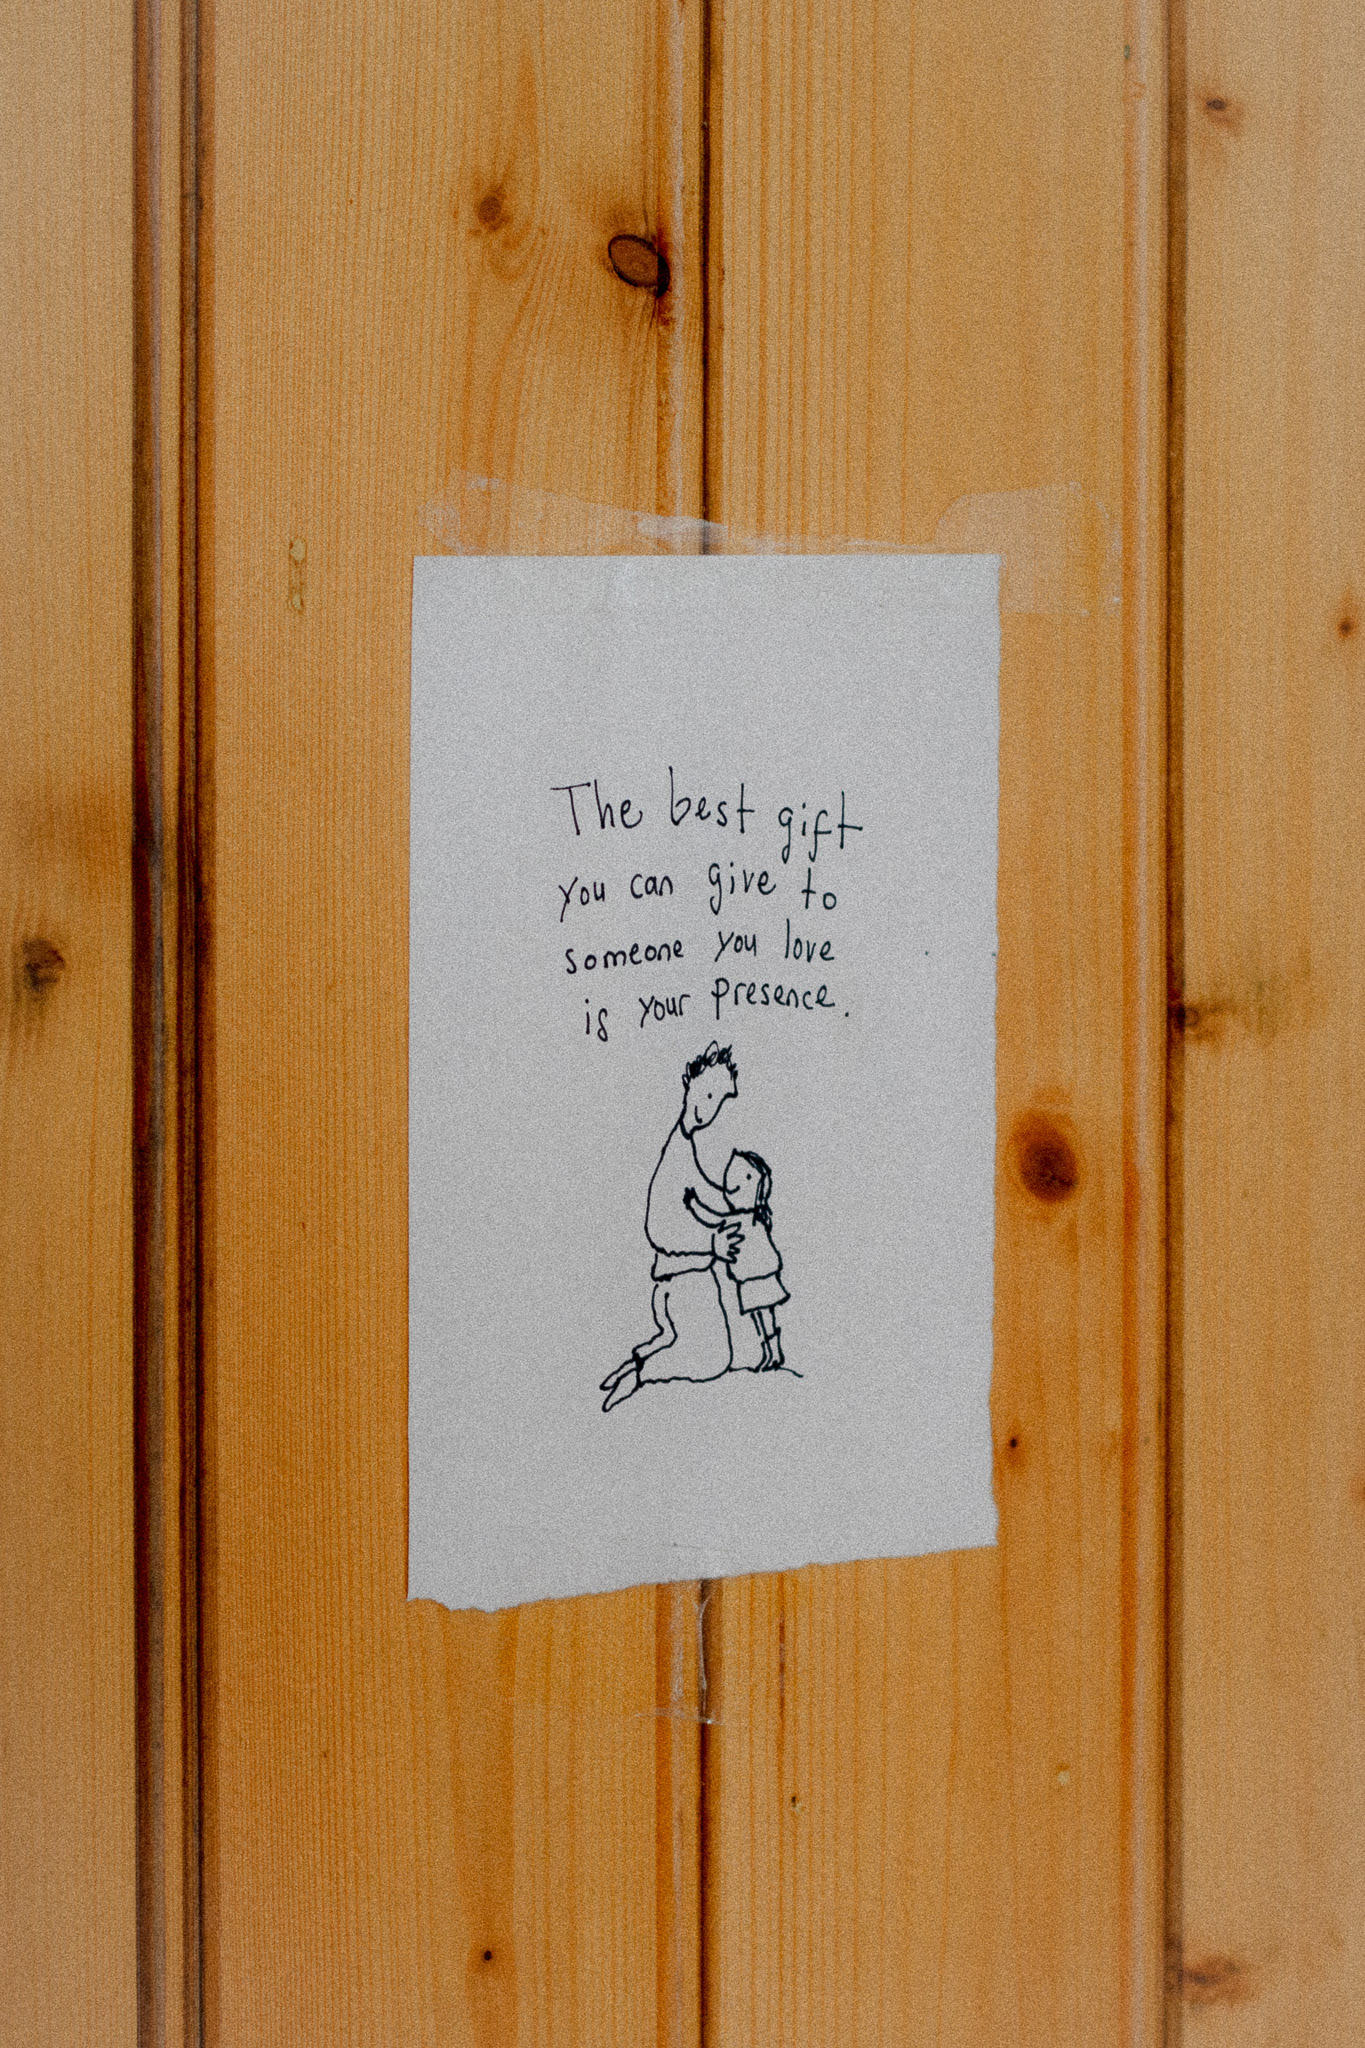 The best gift
you can give to
someone you love
is your presence.